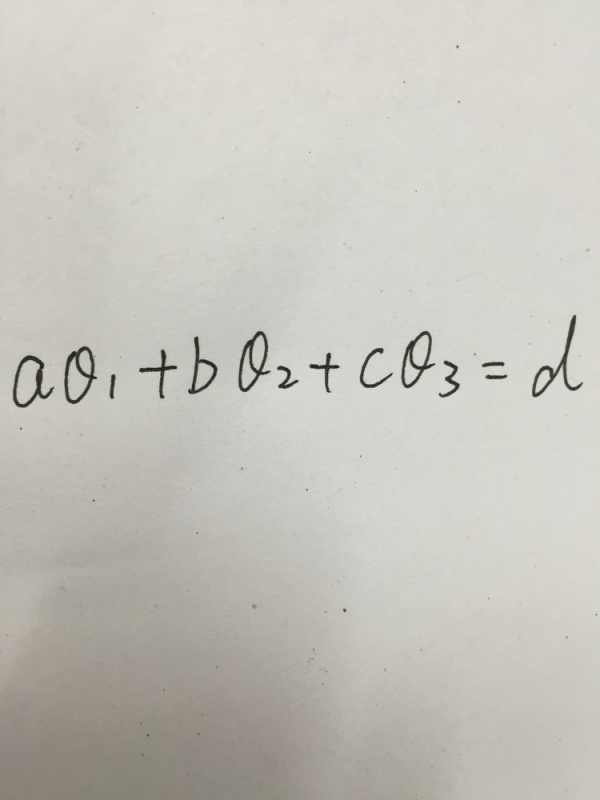 aθ₁+bθ₂+cθ₃=d